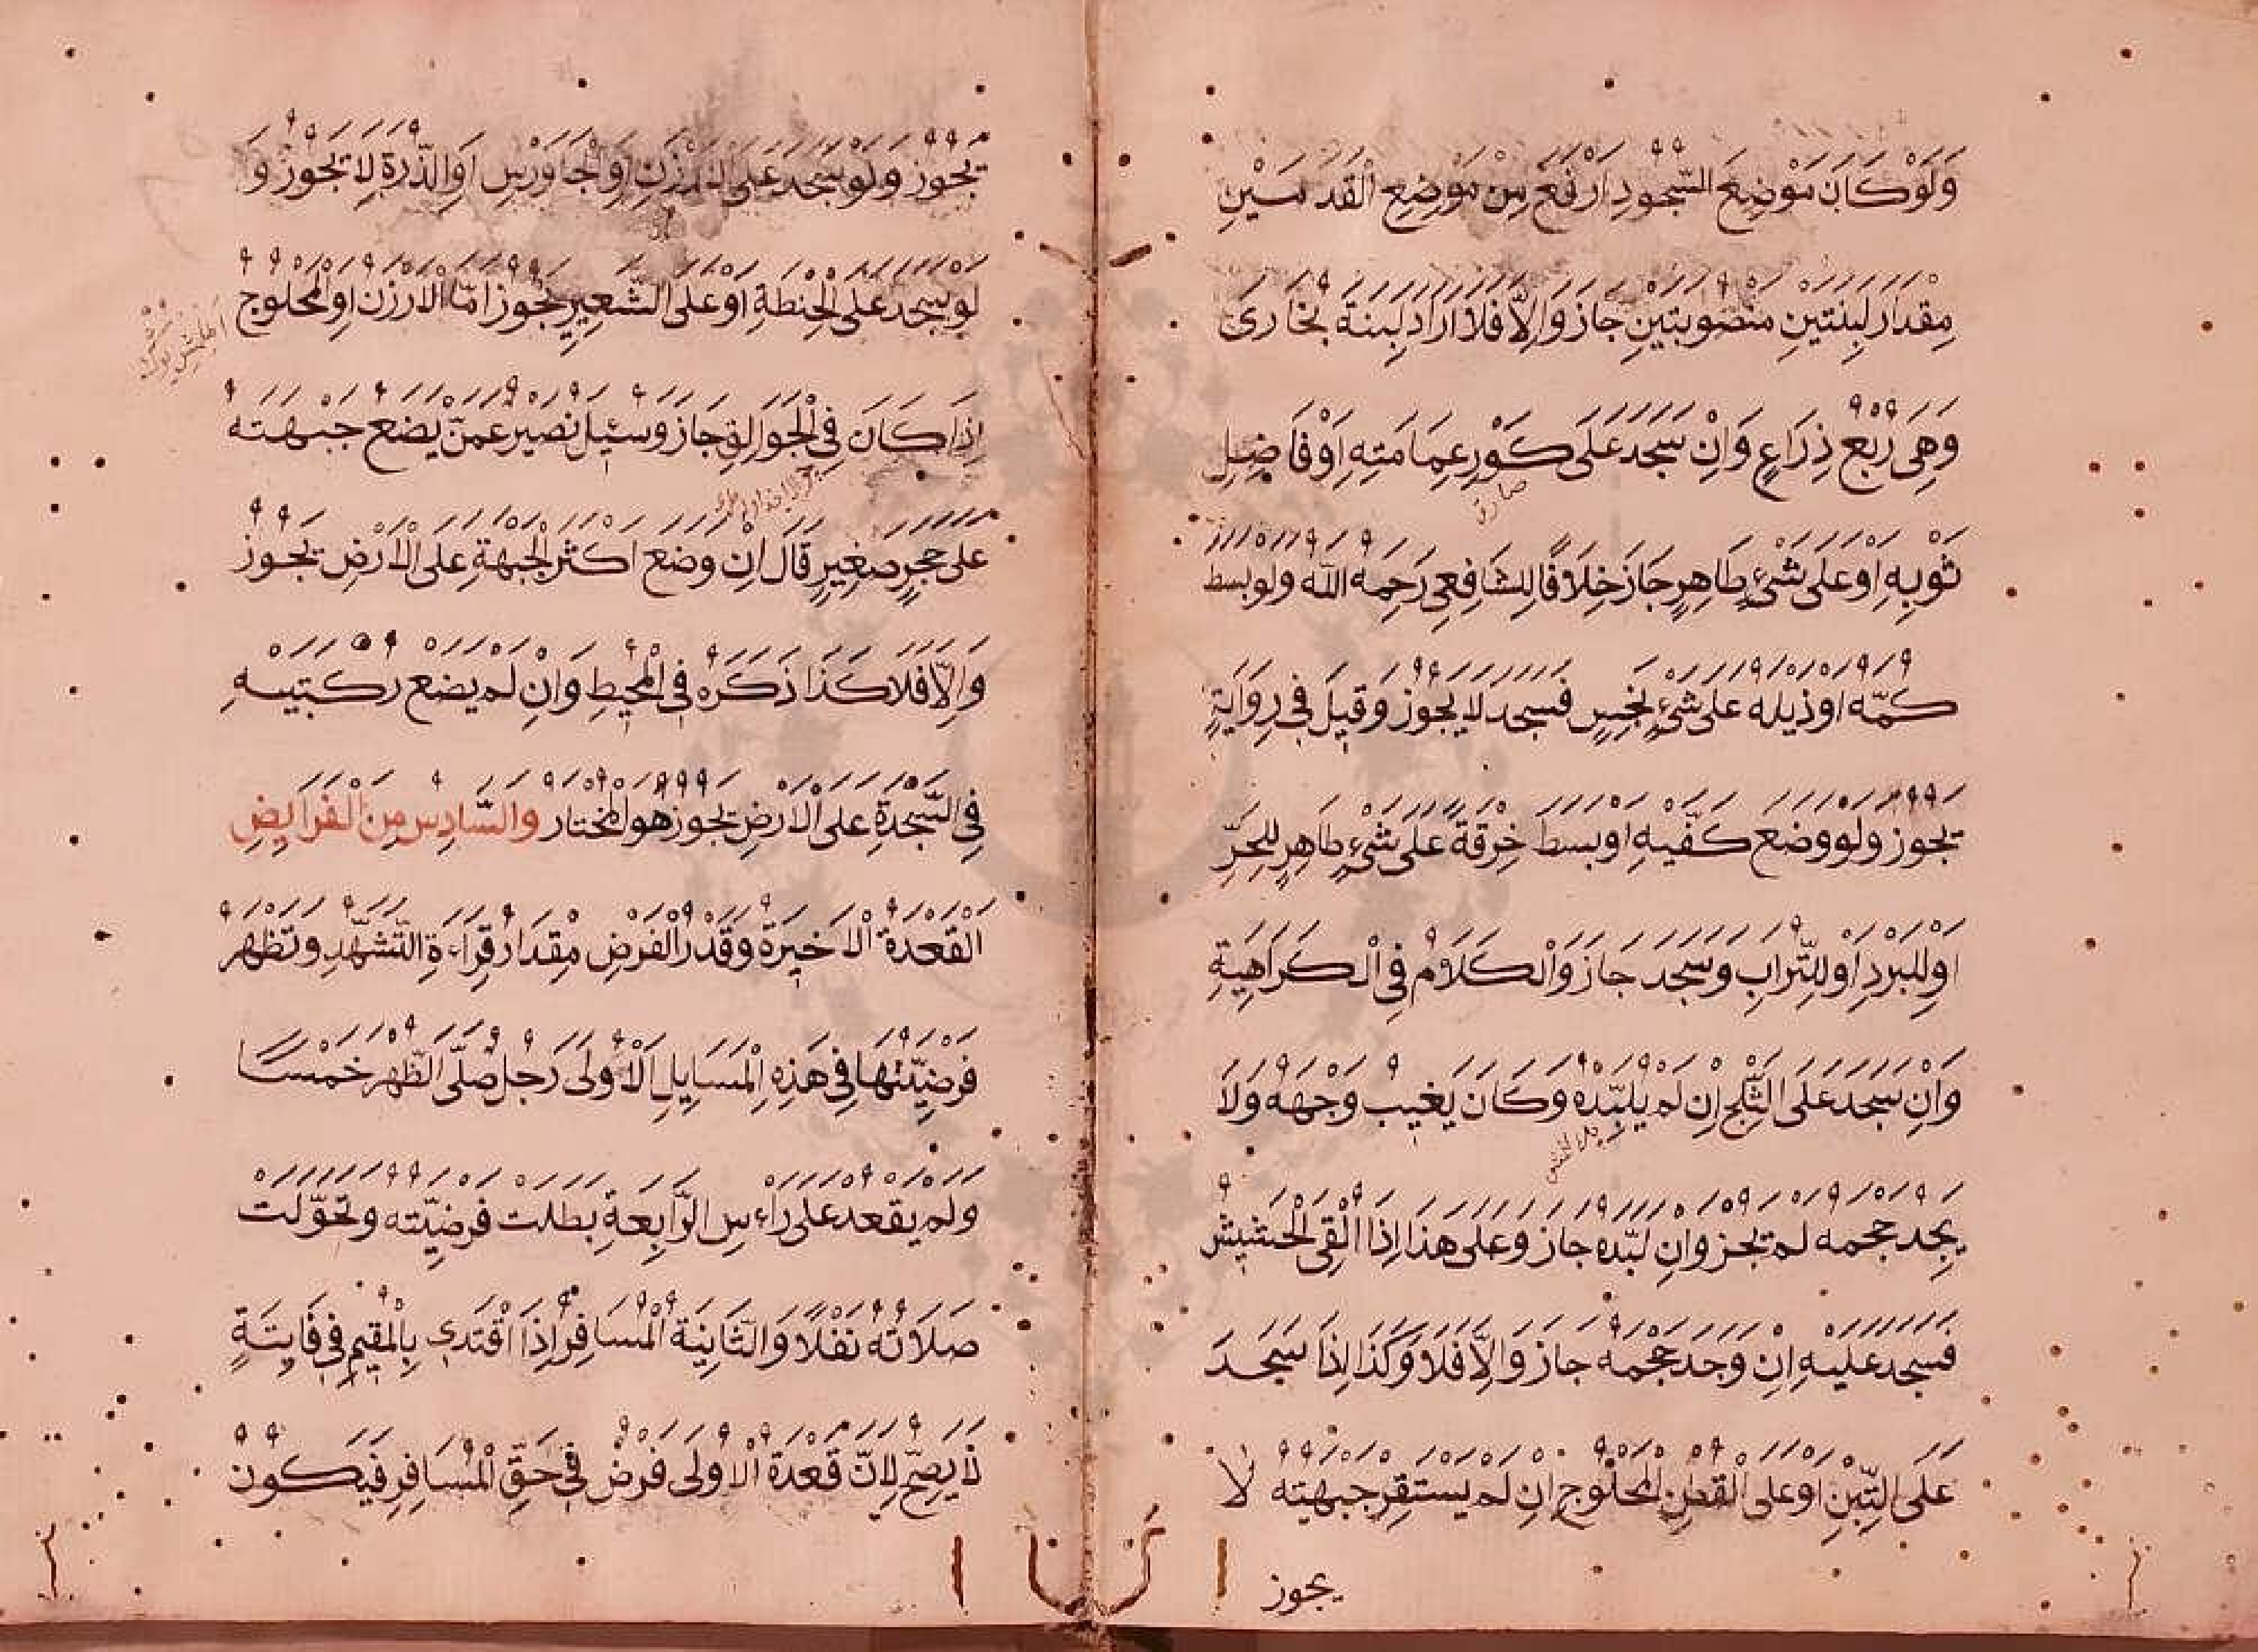 وَلَوْ كَانَ مَوْضِعَ السُّجُودِ اَرْفَعَ مِنْ مَوْضِعِ الْقَدَمَيْنِ
مِقْدَارَ لَبِنَتَيْنِ مَنْصُوبَتَيْنِ جَازَ وَاِلَّا فَلَا اَرَادَ لَبِنَةَ بُخَارَى
وَهِيَ رُبْعُ ذِرَاعٍ وَاِنْ سَجَدَ عَلَى كَوْرِ عِمَامَتِهِ اَوْ فَاضِلِ
ثَوْبِهِ اَوْ عَلَى شَيْءٍ طَاهِرٍ جَازَ خِلَافًا لِلشَّافِعِي رَحِمَهُ اللّٰه وَلَو بَسَطَ
كُمَّهُ اَوْ ذَيْلَهُ عَلَى شَيْءٍ نَجِسٍ فَسَجَدَ لَا يَجُوزُ وَقِيلَ فِي رِوَايَةٍ
تَجُوزُ وَلَوْ وَضَعَ كَفَّيْهِ اَوْ بَسَطَ خِرْقَةً عَلَى شَيْءٍ طَاهِرٍ لِلْحَرِّ
اَوْ لِلْبَرْدِ اَوْ لِلتُّرَابِ وَسَجَدَ جَازَ وَالْكَلَامُ فِي الْكَرَاهِيَةِ
وَاِنْ سَجَدَ عَلَى الثَّلْجِ اِنْ لَمْ يُلَبِّدْهُ وَكَانَ يَغِيبُ وَجْهُهُ وَلَا
يَجِدُ حَجْمَهُ لَمْ تَجُزْ وَاِنْ لَبَّدَهُ جَازَ وَعَلَى هَذَا اِذَا اَلْقَى الْحَشِيشَ
فَسَجَدَ عَلَيْهِ اِنْ وَجَدَ حَجْمَهُ جَازَ وَاِلَّا فَلَا وَكَذَا اِذَا سَجَدَ
عَلَى التِّبْنِ اَوْ عَلَى الْقُطْنِ الْمَحْلُوجِ اِنْ لَمْ يَسْتَقِرَّ جَبْهَتُهُ لَا
يجوز
تَجُوزُ وَلَوْ سَجَدَ عَلَى الْاَرُزْنِ اَوِ الْجَاوَرْسِ اَوِ الذُّرَةِ لَا تَجُوزُ وَ
لَوْ سَجَدَ عَلَى الْحِنْطَةِ اَوْ عَلَى الشَّعِيرِ يَجُوزُ اَمَّا الْاَرُزْنُ اَوِ الْمَحْلُوجُ
اِذَا كَانَ فِي الْجَوَالِقِ جَازَ وَسُئِلَ نُصَيْر عَمَّنْ يَضَعُ جَبْهَتَهُ
عَلَى حَجَرٍ صَغِيرٍ قَالَ اِنْ وَضَعَ اَكْثَرَ الْجَبْهَةِ عَلَى الْاَرْضِ تَجُوزُ
وَاِلَّا فَلَا كَذَا ذَكَرَهُ فِي الْمُحِيطِ وَاِنْ لَمْ يَضَعْ رُكْبَتَيْهِ
فِي السَّجْدَةِ عَلَى الْاَرْضِ تَجُوزُ هُوَ الْمُخْتَارُ وَالسَّادِس مِنَ الْفَرَايِضِ
الْقَعْدَةُ الْاَخِيرَةُ وَقَدْرُ الْفَرْضِ مِقْدَارُ قِرَاءَةِ التَّشَهُّدِ وَتَظْهَرُ
فَرْضِيَّتُهَا فِي هَذِهِ الْمَسَايِلِ الْاُولَى رَجُلٌ صَلَّى الظُّهْرَ خَمْسًا
وَلَمْ يَقْعُدْ عَلَى رَاءسِ الرَّابِعَةِ بَطَلَتْ فَرْضِيَّتُهُ وَتَحَوَّلَتْ
صَلَاتُهُ نَفْلًا وَالثَّانِيَةُ الْمُسَافِرُ اِذَا اقْتَدَى بِالْمُقِيمِ فِي فَايِتَةٍ
لَا يَصِحُّ لِاَنَّ قَعْدَةَ الْاُولَى فَرْضٌ فِي حَقِّ الْمُسَافِرِ فَيَكُونُ